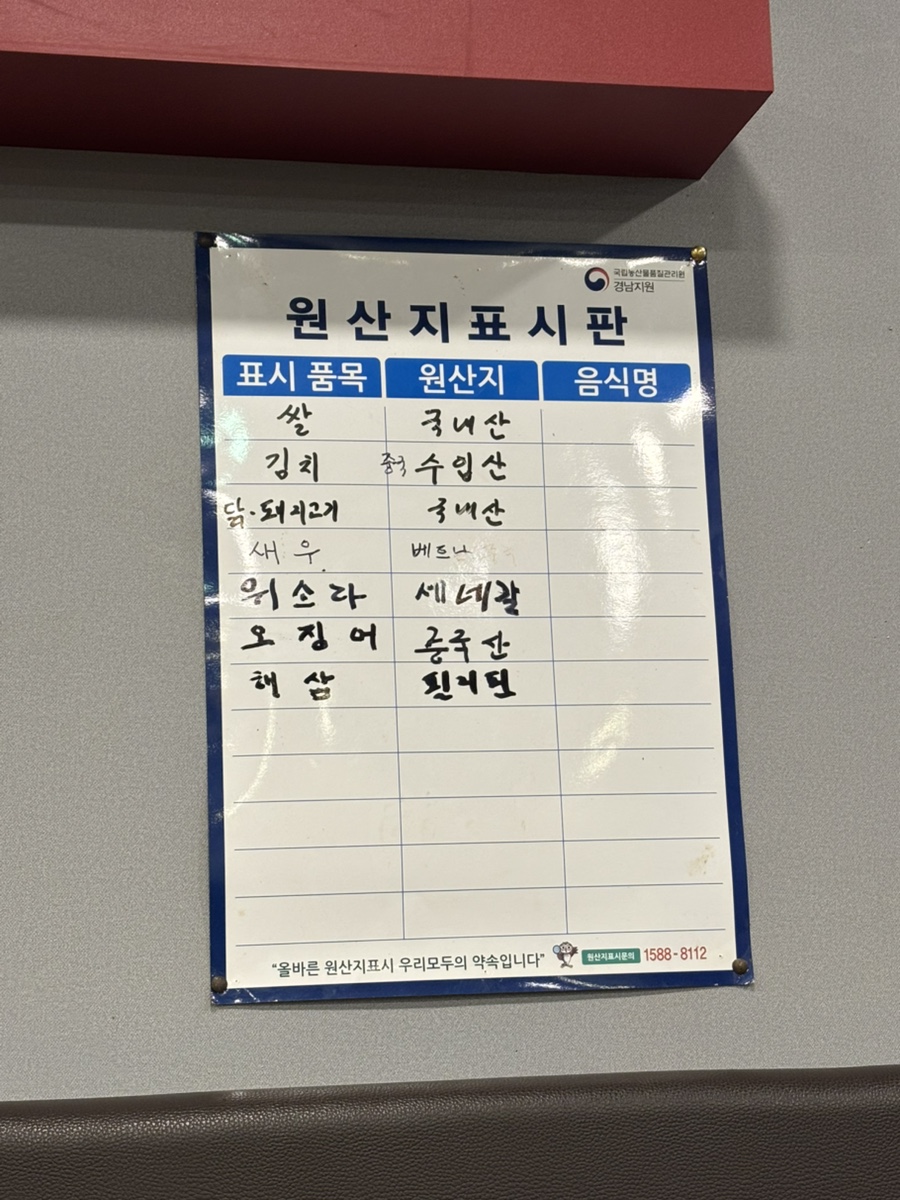 국립농산물품질관리원
경남지원
원산지표시판
표시 품목 원산지 음식명
쌀 국내산
김치 중국 수입산
닭·돼지고기 국내산
새우 베트나
위소라 세네갈
오징어 중국산
해삼
"올바른 원산지표시 우리모두의 약속입니다" 원산지표시문의 1588-8112